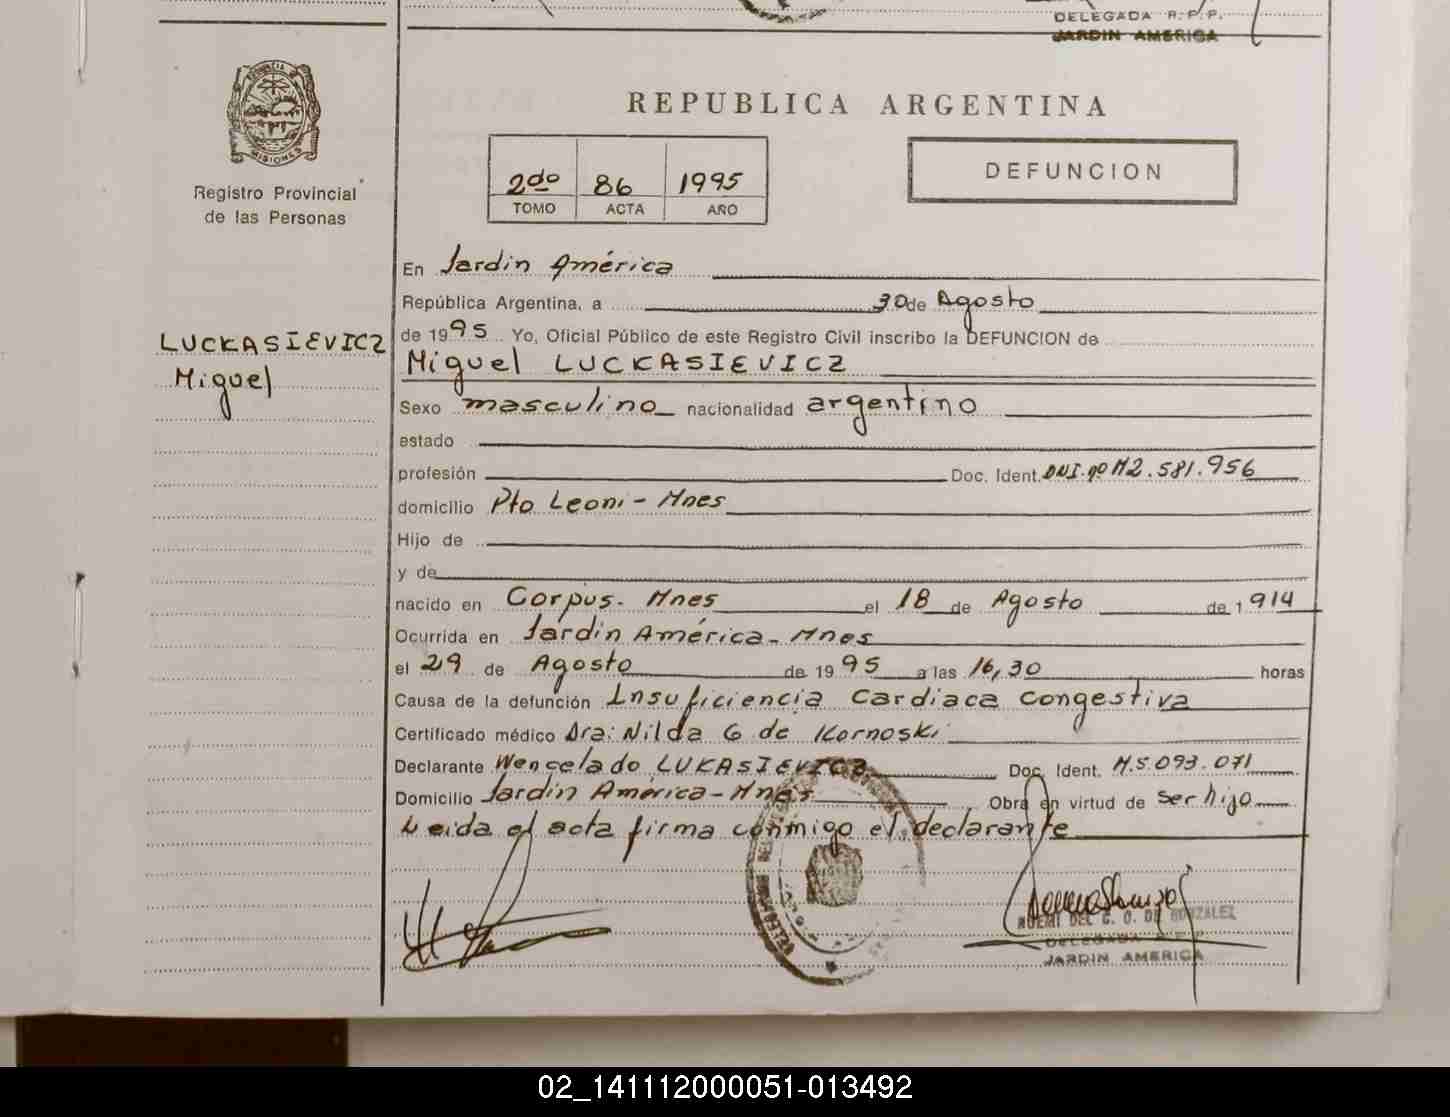 DELEGADA R.P.P.
JARDIN AMERICA
PROVINCIA DE
MISIONES
Registro Provincial
de las Personas
REPUBLICA ARGENTINA
DEFUNCION
2do 86 1995
TOMO ACTA AÑO
LUCKASIEVICZ
Miguel
En Jardin América
República Argentina, a 30 de Agosto
de 1995 Yo, Oficial Público de este Registro Civil inscribo la DEFUNCION de
Miguel LUCKASIEVICZ
Sexo masculino nacionalidad argentino
estado
profesión Doc. Ident. DNI. nº M2.581.956
domicilio Pto Leoni - Mnes
Hijo de
y de
nacido en Corpus - Mnes el 18 de Agosto de 1914
Ocurrida en Jardin América - Mnes
el 29 de Agosto de 1995 a las 16,30 horas
Causa de la defunción Insuficiencia Cardiaca congestiva
Certificado médico Dra: Nilda G de Kornoski
Declarante Wencelado LUKASIEVICZ Doc. Ident. M.5.093.071
Domicilio Jardin América - Mnes Obra en virtud de ser hijo
Leida el acta firma conmigo el declarante
NOEMI DEL C. O. DE GONZALEZ
DELEGADA R.P.P.
JARDIN AMERICA
02_141112000051-013492